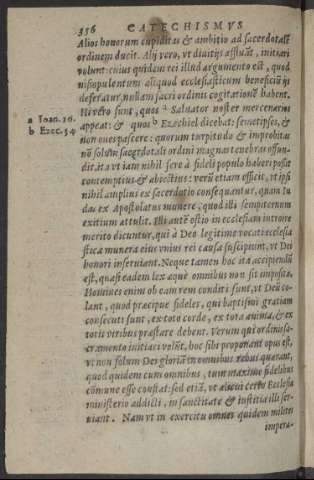 356 CATECHISMVS
Alios honorum cupiditas & ambitio ad sacerdotalẽ
ordinem ducit. Alij verò, vt diuitijs affluãt, initiari
volunt: cuius quidem rei illud argumento est, quod
nisi opulentum aliquod ecclesiasticum beneficiũ ijs
deferatur, nullam sacri ordinis cogitationẽ habent.
Hi verò sunt, quos a Saluator noster mercenarios
a Ioan. 10.
appeat: & quos b Ezechiel dicebat: semetipsos, &
b Ezec. 34
non oues pascere: quorum turpitudo & improbitas
nõ solùm sacerdotali ordini magnas tenebras offun-
dit, ita vt iam nihil ferè à fideli populo haberi possit
contemptius & abiectius: verũ etiam efficit, vt ipsi
nihil amplius ex sacerdotio consequantur, quàm Iu-
das ex Apostolatus munere, quod illi sempiternum
exitium attulit. Illi autẽ ostio in ecclesiam introire
meritò dicuntur, qui à Deo legitimè vocati ecclesia
stica munera eius vnius rei causa suscipiunt, vt Dei
honori inseruiant. Neque tamen hoc ita accipiendũ
est, quasi eadem lex æquè omnibus non sit imposita.
Homines enim ob eam rem conditi sunt, vt Deũ co-
lant, quod præcipuè fideles, qui baptismi gratiam
consecuti sunt, ex toto corde, ex tota anima, & ex
totis viribus præstare debent. Verùm qui ordinis sa-
cramento initiari volũt, hoc sibi proponant opus est,
vt non solùm Dei gloriã in omnibus rebus quærant,
quod quidem cum omnibus, tum maximè fidelibus
cõmune esse constat: sed etiã, vt alicui certo Ecclesiæ
ministerio addicti, in sanctitate & iustitia illi ser-
uiant. Nam vt in exercitu omnes quidem milites
impera-